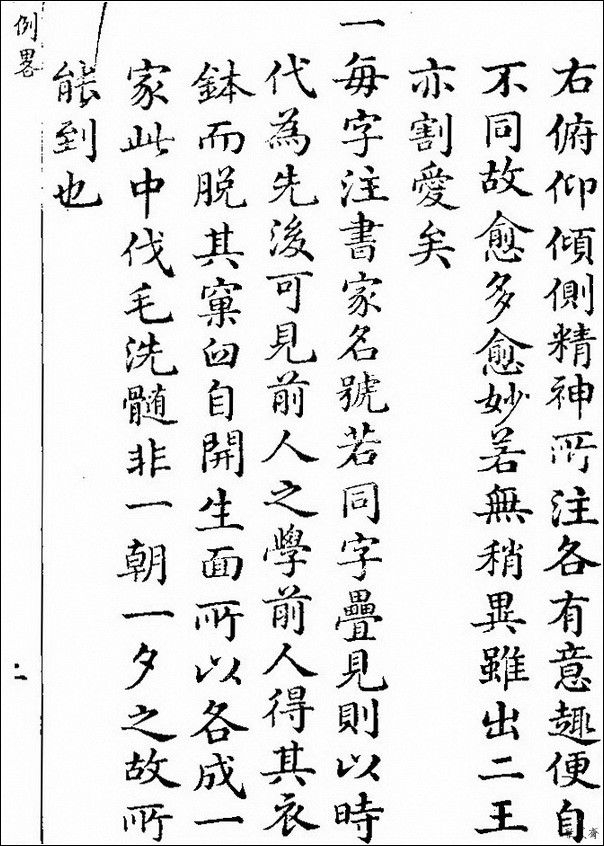 右俯仰傾側精神所注各有意趣便自
不同故愈多愈妙若無稍異雖出二王
亦割愛矣
一每字注書家名號若同字疊見則以時
代為先後可見前人之學前人得其衣
鉢而脱其窠臼自開生面所以各成一
家此中伐毛洗髓非一朝一夕之故所
能到也
例畧
二